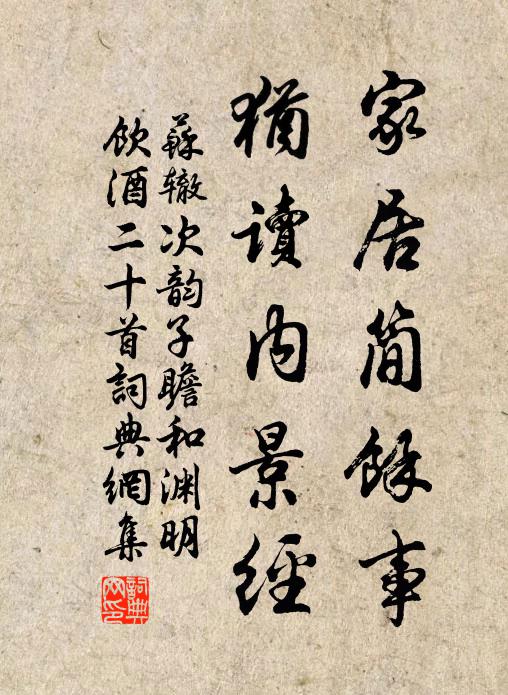 家居簡餘事
猶讀内景經
蘇辙次韵子瞻和渊明
飲酒二十首詞典網集
詞典
网印